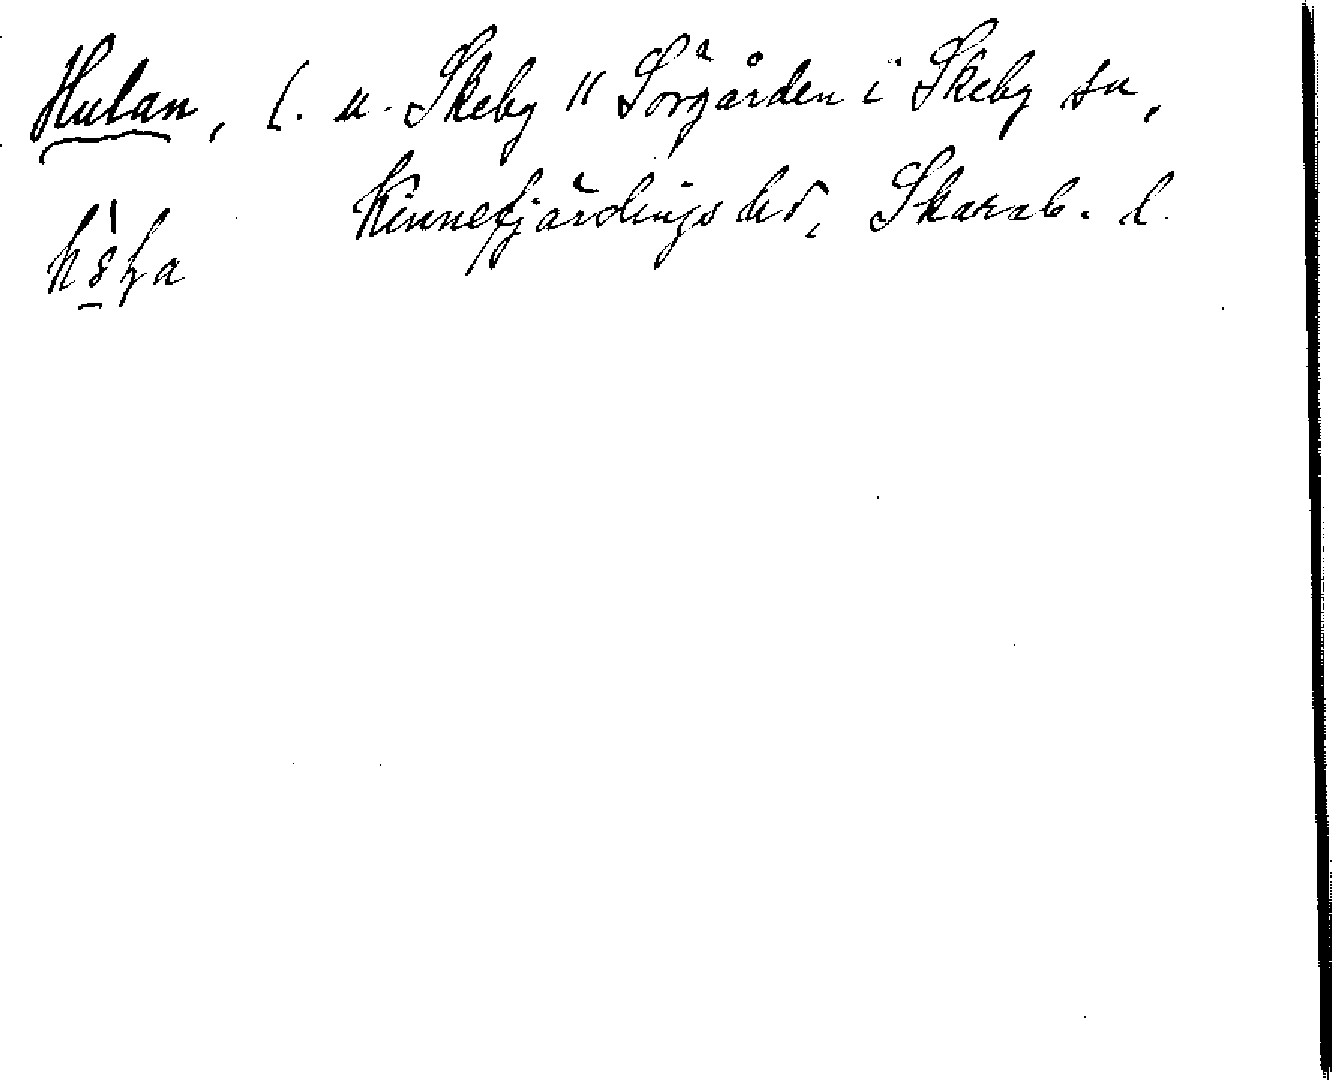 Hulan, l. u. Skeby " Sörgården i Skeby sn,
Kinnefjärdings hd, Skarab. l.